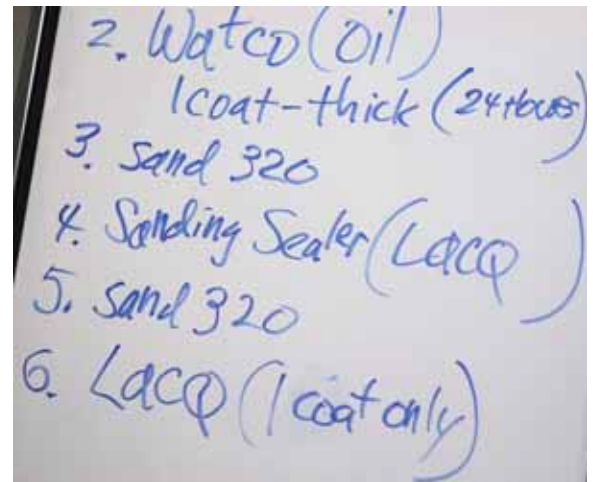 2. Watco (Oil)
1 coat-thick (24 Hours)
3. Sand 320
4. Sanding Sealer (Lacq)
5. Sand 320
6. Lacq (1 coat only)